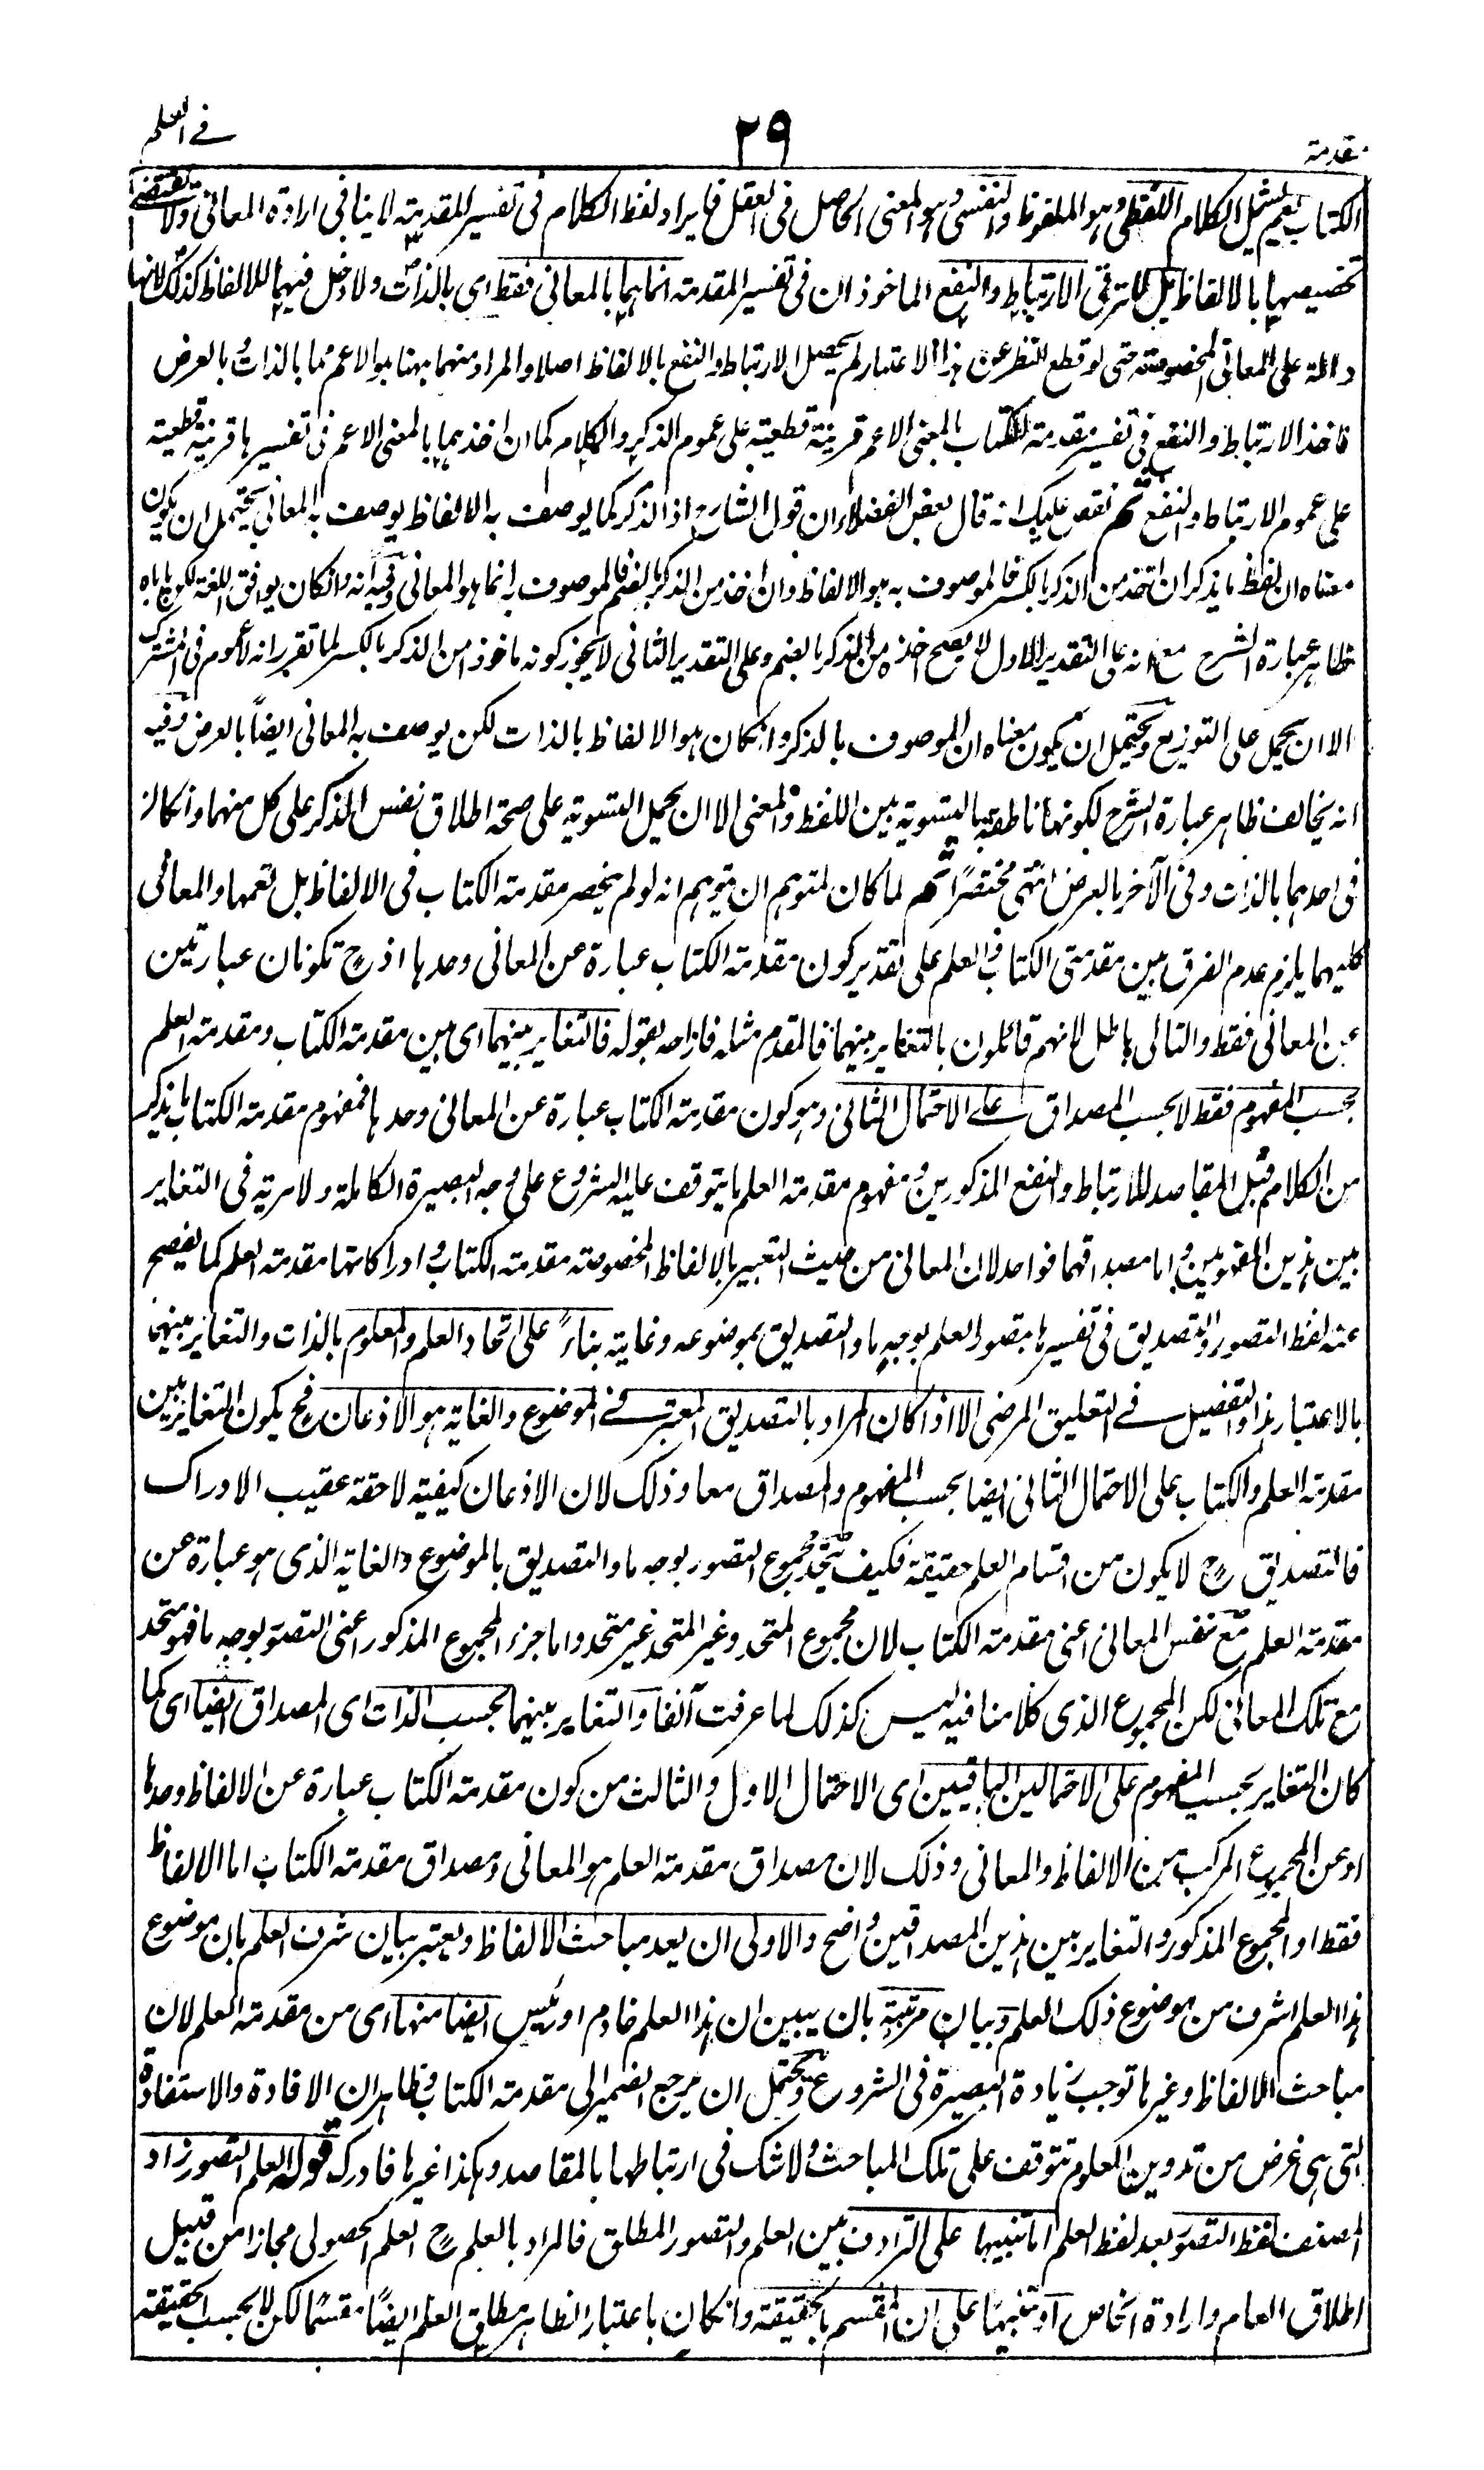 مقدمة
٢٩
في العلم
الكتاب يعم يشمل الكلام اللفظي وهو الملفوظ والنفسي وهو المعنى الحاصل في العقل فايراد لفظ الكلام في تفسير المقدمة لا ينافي ارادة المعاني ولا يقتضي
تخصيصها بالالفاظ بل الارتباط والنفع الماخوذان في تفسير المقدمة انما هما بالمعاني فقط اى بالذات ولا دخل فيهما للالفاظ كذلك لانها
دالة على المعاني المخصوصة حتى لو قطع النظر عن هذا الاعتبار لم يحصل الارتباط والنفع بالالفاظ اصلا والمراد منهما ههنا هو الاعم مما بالذات او بالعرض
فاخذ الارتباط والنفع في تفسير مقدمة الكتاب بالمعنى الاعم قرينة قطعية على عموم الذكر والكلام كما ان اخذهما بالمعنى الاعم في تفسيرها قرينة قطعية
على عموم الارتباط والنفع ثم نقص عليك انه قال بعض الفضلاء ان قول الشارح اذ الذكر كما يوصف به الالفاظ يوصف به المعاني يحتمل ان يكون
معناه ان لفظ ما يذكر ان اتخذ من الذكر بالكسر فالموصوف به هو الالفاظ وان اخذ من الذكر بالضم فالموصوف به انما هو المعاني وفيه انه وانكان يوافق اللغة لكن ياباه
ظاهر عبارة الشرح مع انه على التقدير الاول لا يصح اخذه من الذكر بالضم وعلى التقدير الثاني لا يجوز كونه ماخوذا من الذكر بالكسر لما تقرر انه لا عموم في المشترك
الا ان يحمل على التوزيع ويحتمل ان يكون معناه ان الموصوف بالذكر وانكان هو الالفاظ بالذات لكن يوصف به المعاني ايضاً بالعرض وفيه
انه يخالف ظاهر عبارة الشرح لكونها ناطقة بالتسوية بين اللفظ والمعنى الا ان يحمل التسوية على صحة اطلاق نفس الذكر على كل منهما وانكان
في احدهما بالذات وفي الآخر بالعرض انتهى مختصرًا ثم لما كان لمتوهم ان يتوهم انه لو لم يخصر مقدمة الكتاب في الالفاظ بل تعمها والمعاني
كليهما يلزم عدم الفرق بين مقدمتي الكتاب والعلم على تقدير كون مقدمة الكتاب عبارة عن المعاني وحدها اذ ح تكونان عبارتين
عن المعاني فقط والتالي باطل لانهم قائلون بالتغاير بينهما فالمقدم مثله فازاحه بقوله فالتغاير بينهما اى بين مقدمة الكتاب ومقدمة العلم
بحسب المفهوم فقط لا بحسب المصداق على الاحتمال الثاني وهو كون مقدمة الكتاب عبارة عن المعاني وحدها فمفهوم مقدمة الكتاب ما يذكر
من الكلام قبل المقاصد للارتباط والنفع المذكورين ومفهوم مقدمة العلم ما يتوقف عليه الشروع على وجه البصيرة الكاملة ولا مرية في التغاير
بين هذين المفهومين واما مصداقهما فواحد لان المعاني من حيث التعبير بالالفاظ المخصوصة مقدمة الكتاب وادراكاتها مقدمة العلم كما يفصح
عنه لفظ التصور والتصديق في تفسيرها بتصور العلم بوجه ما والتصديق بموضوعه وغايته بناءً على اتحاد العلم والمعلوم بالذات والتغاير بينهما
بالاعتبار هذا والتفصيل في التعليق المرضي الا اذا كان المراد بالتصديق المعتبر في الموضوع والغاية هو الاذعان فح يكون التغاير بين
مقدمة العلم والكتاب على الاحتمال الثاني ايضا بحسب المفهوم والمصداق معا وذلك لان الاذعان كيفية لاحقة عقيب الادراك
فالتصديق ح لا يكون من اقسام العلم حقيقة فكيف يتحد مجموع التصور بوجه ما والتصديق بالموضوع والغاية الذى هو عبارة عن
مقدمة العلم مع نفس المعاني اعني مقدمة الكتاب لان مجموع المتحد وغير المتحد غير متحد واما جزء المجموع المذكور اعني التصور بوجه ما فهو متحد
مع تلك المعاني لكن المجموع الذى كلامنا فيه ليس كذلك لما عرفت آنفا والتغاير بينهما بحسب الذات اى المصداق ايضا اى كما
كان التغاير بحسب المفهوم على الاحتمالين الباقيين اى الاحتمال الاول والثالث من كون مقدمة الكتاب عبارة عن الالفاظ وحدها
او عن المجموع المركب من الالفاظ والمعاني وذلك لان مصداق مقدمة العلم هو المعاني ومصداق مقدمة الكتاب اما الالفاظ
فقط او المجموع المذكور والتغاير بين هذين المصداقين واضح والاولى ان يعد مباحث الالفاظ ويعتبر بيان شرف العلم بان موضوع
هذا العلم اشرف من موضوع ذلك العلم وبيان مرتبة بان يبين ان هذا العلم خادم او رئيس ايضا منها اى من مقدمة العلم لان
مباحث الالفاظ وغيرها توجب زيادة البصيرة في الشروع ويحتمل ان يرجع الضمير الى مقدمة الكتاب فظاهر ان الافادة والاستفادة
التي هي غرض من تدوين العلوم تتوقف على تلك المباحث ولا شك في ارتباطها بالمقاصد وهكذا غيرها فادرك قوله العلم التصور زاد
المصنف لفظ التصور بعد لفظ العلم اما تنبيها على الترادف بين العلم والتصور المطلق فالمراد بالعلم ح العلم الحصولي مجازا من قبيل
اطلاق العام وارادة الخاص او تنبيهًا على ان المقسم بالحقيقة وانكان باعتبار الظاهر مطلق العلم ايضًا مقسمًا لكن لا بحسب الحقيقة